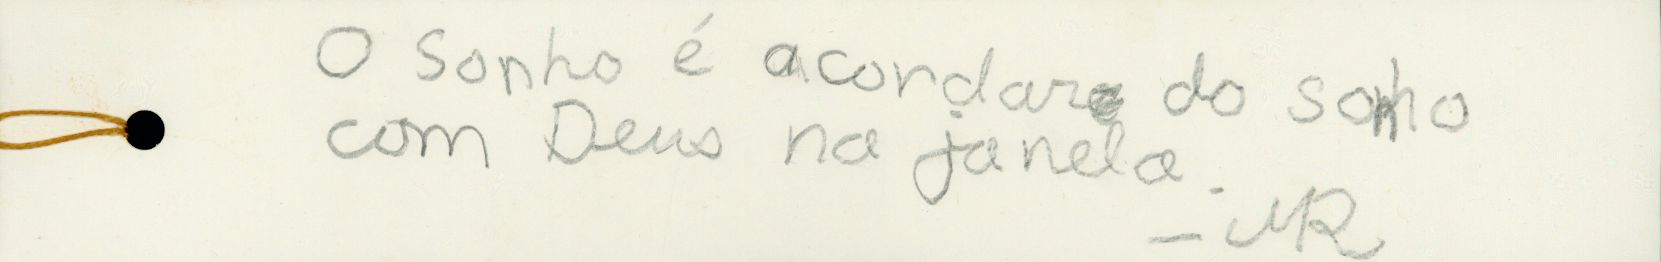 O Sonho é acordar do sonho
com Deus na janela.
– MR